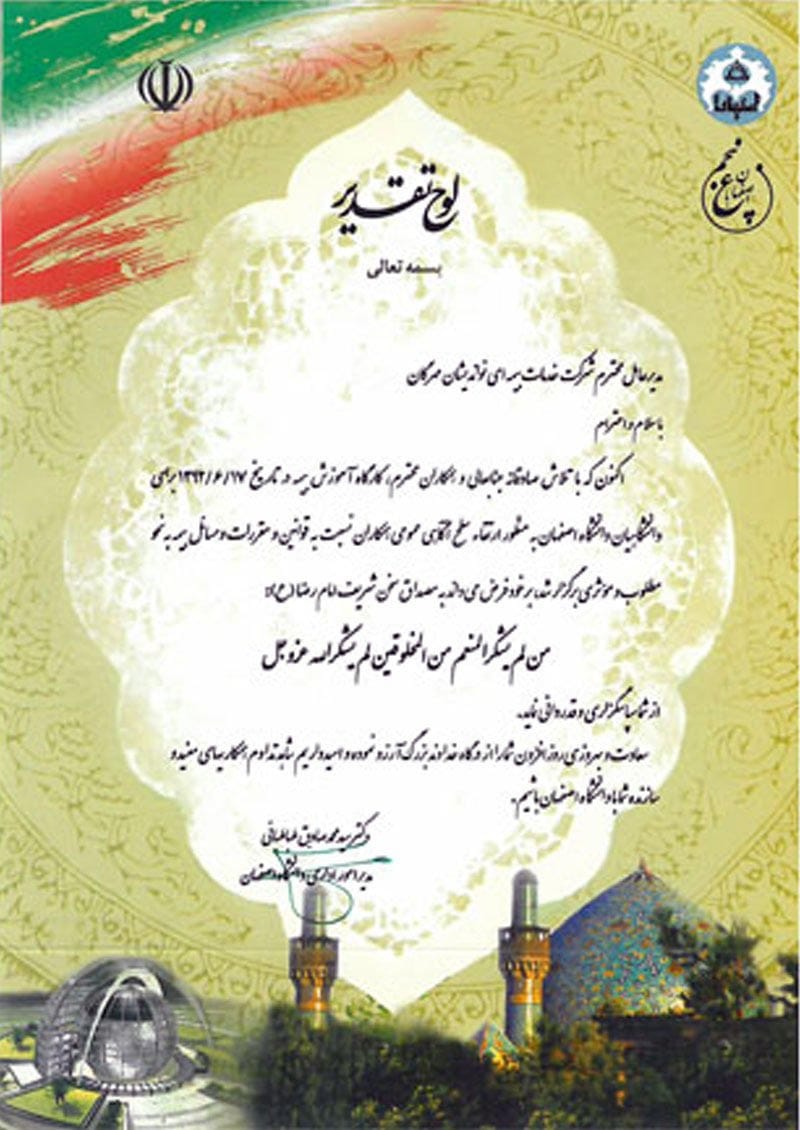 لوح تقدیر
بسمه تعالی
مدیر عامل محترم شرکت خدمات بیمه ای نواندیشان مهرگان
با سلام و احترام
اکنون که با تلاش صادقانه جنابعالی و همکاران محترم، کارگاه آموزش بیمه در تاریخ ۱۳۹۲/۶/۱۷ برای
دانشگاهیان دانشگاه اصفهان به منظور ارتقاء سطح آگاهی عمومی همکاران نسبت به قوانین و مقررات و مسائل بیمه به نحو
مطلوب و مؤثری برگزار شد، بر خود فرض می داند به مصداق سخن شریف امام رضا (ع):
من لم یشکر المنعم من المخلوقین لم یشکر الله عزوجل
از شما سپاسگزاری و قدردانی نماید.
سعادت و بهروزی روز افزون شما را از درگاه خداوند بزرگ آرزو نموده و امیدواریم شاهد تداوم همکاریهای مفید و
سازنده شما با دانشگاه اصفهان باشیم.
دکتر سید محمد صادق طباطبائی
مدیر امور اداری دانشگاه اصفهان